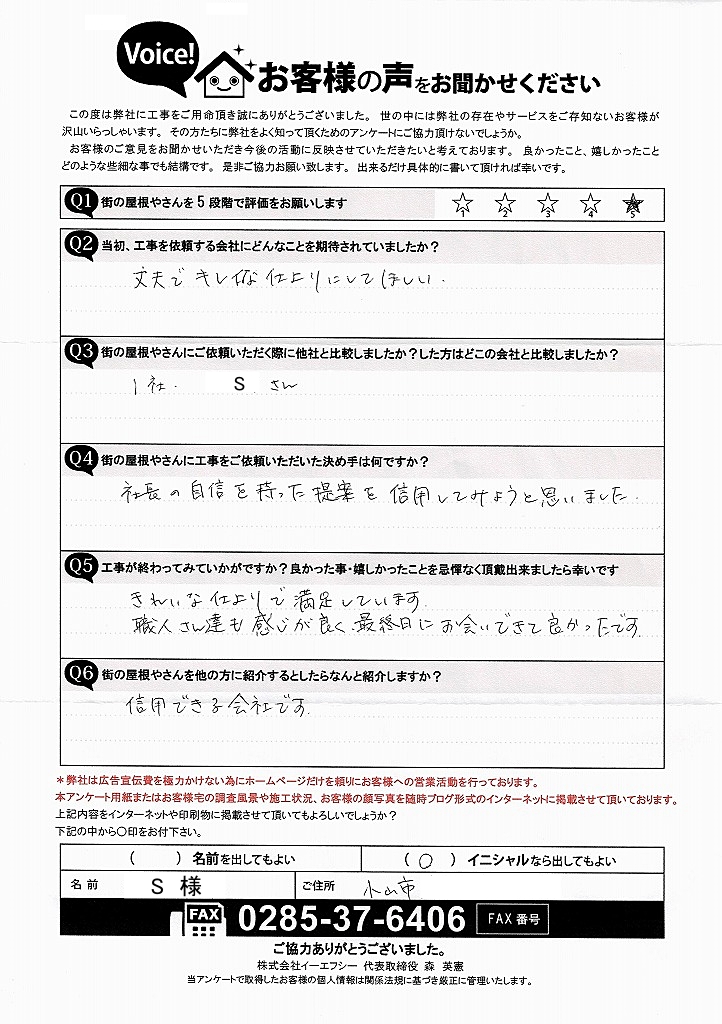 Voice! お客様の声をお聞かせください
この度は弊社に工事をご用命頂き誠にありがとうございました。 世の中には弊社の存在やサービスをご存知ないお客様が
沢山いらっしゃいます。 その方たちに弊社をよく知って頂くためのアンケートにご協力頂けないでしょうか。
お客様のご意見をお聞かせいただき今後の活動に反映させていただきたいと考えております。 良かったこと、嬉しかったこと
どのような些細な事でも結構です。 是非ご協力お願い致します。 出来るだけ具体的に書いて頂ければ幸いです。
Q1 街の屋根やさんを5段階で評価をお願いします
1 2 3 4 5
Q2 当初、工事を依頼する会社にどんなことを期待されていましたか?
丈夫でキレイな仕上りにしてほしい.
Q3 街の屋根やさんにご依頼いただく際に他社と比較しましたか?した方はどこの会社と比較しましたか?
1社. S さん
Q4 街の屋根やさんに工事をご依頼いただいた決め手は何ですか?
社長の自信を持った提案を信用してみようと思いました.
Q5 工事が終わってみていかがですか?良かった事・嬉しかったことを忌憚なく頂戴出来ましたら幸いです
きれいな仕上りで満足しています.
職人さん達も感じが良く、最終日にお会いできて良かったです.
Q6 街の屋根やさんを他の方に紹介するとしたらなんと紹介しますか?
信用できる会社です.
*弊社は広告宣伝費を極力かけない為にホームページだけを頼りにお客様への営業活動を行っております。
本アンケート用紙またはお客様宅の調査風景や施工状況、お客様の顔写真を随時ブログ形式のインターネットに掲載させて頂いております。
上記内容をインターネットや印刷物に掲載させて頂いてもよろしいでしょうか?
下記の中から○印をお付下さい。
( ) 名前を出してもよい ( ○ ) イニシャルなら出してもよい
名前 S 様 ご住所 小山市
FAX 0285-37-6406 FAX 番号
ご協力ありがとうございました。
株式会社イーエフシー 代表取締役 森 英憲
当アンケートで取得したお客様の個人情報は関係法規に基づき厳正に管理いたします。